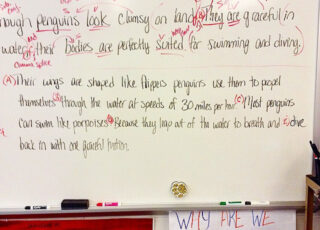 hough penguins look clumsy on land they are graceful in
water their bodies are perfectly suited for swimming and diving.
comma splice
(A) Their wings are shaped like flippers penguins use them to propel
themselves through the water at speeds of 30 miles per hour (C) Most penguins
can swim like porpoises Because they leap out of the water to breath and dive
back in with one graceful motion.
WHY ARE WE